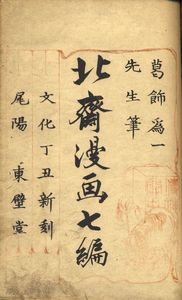 葛飾爲一
先生筆
北齋漫画七編
文化丁丑新刻
尾陽　東壁堂